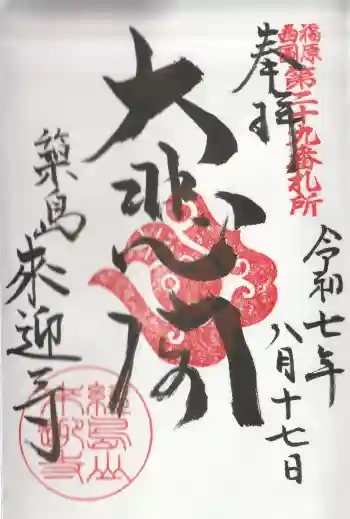 福原
西國
第二十九番札所
奉拝
令和七年
八月十七日
大悲閣
築島来迎寺
経島山
来迎寺